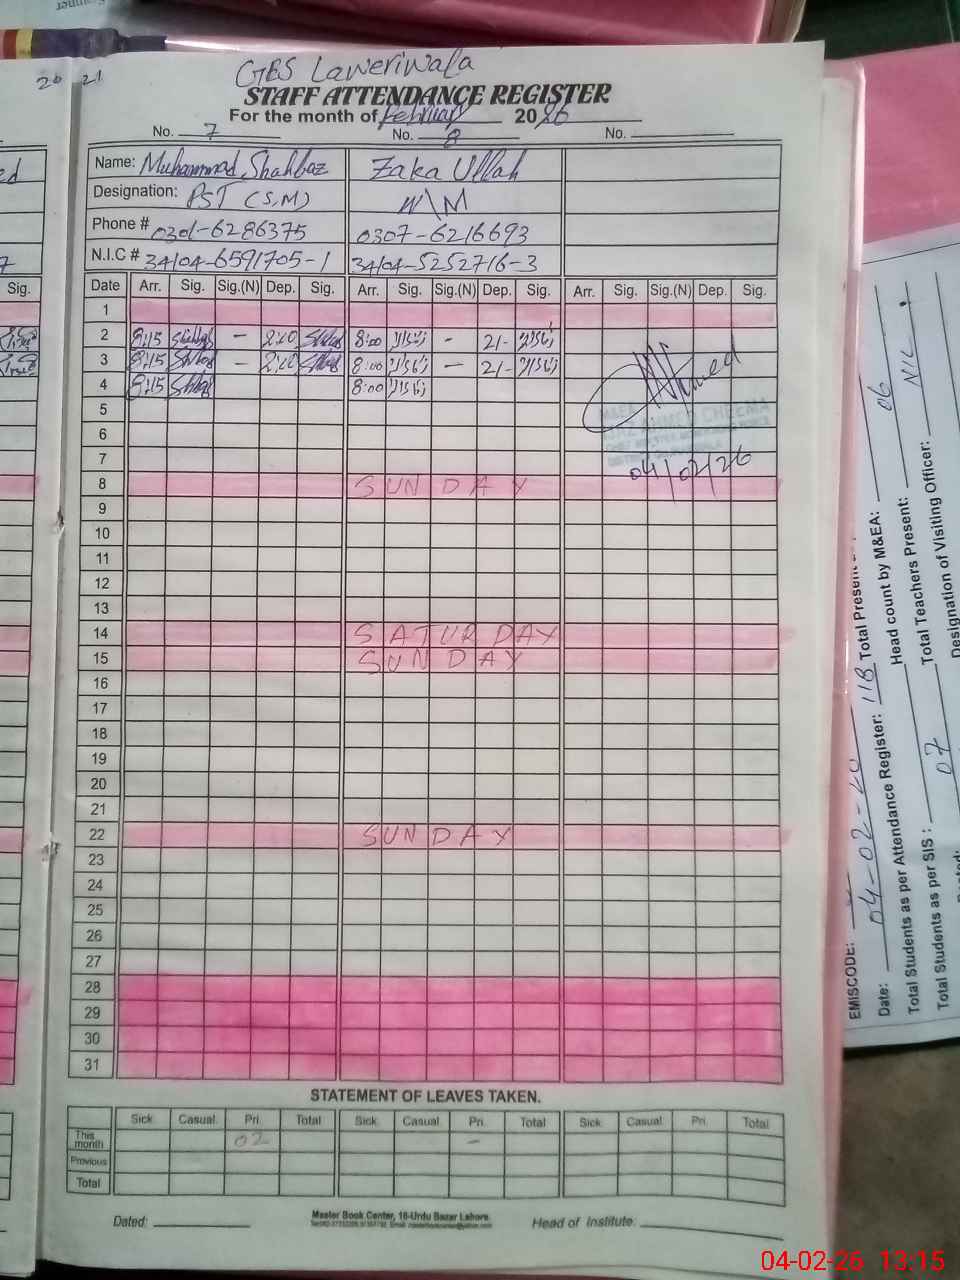 20 21
GES Laweriwala
STAFF ATTENDANCE REGISTER
For the month of February 2026
No. 7 No. 8 No.
Name: Muhammad Shahbaz Zaka Ullah
Designation: PST (S,M) N\M
Phone # 0301-6286375 0307-6216693
N.I.C # 34104-6591705-1 34104-5252716-3
Sig. Date Arr. Sig. Sig.(N) Dep. Sig. Arr. Sig. Sig.(N) Dep. Sig. Arr. Sig. Sig.(N) Dep. Sig.
1
2 8:15 – 2:20 8:00 - 21-
3 8:15 – 2:20 8:00 – 21-
4 8:15 8:00
5
6
7
8 SUNDAY
9
10
11
12
13
14 SATURDAY
15 SUNDAY
16
17
18
19
20
21
22 SUNDAY
23
24
25
26
27
28
29
30
31
Ahmed
M&EA
IJAZ AHMED CHEEMA
04/02/26
STATEMENT OF LEAVES TAKEN.
Sick Casual Pri. Total Sick Casual Pri. Total Sick Casual Pri. Total
This month 02 –
Previous
Total
Dated: Head of Institute.
Master Book Center, 16-Urdu Bazar Lahore.
EMISCODE:
Date: 04-02-26
Total Students as per Attendance Register: 118 Total Present
Head count by M&EA: 06
Total Students as per SIS: 07 Total Teachers Present: NIL
Designation of Visiting Officer:
04-02-26 13:15